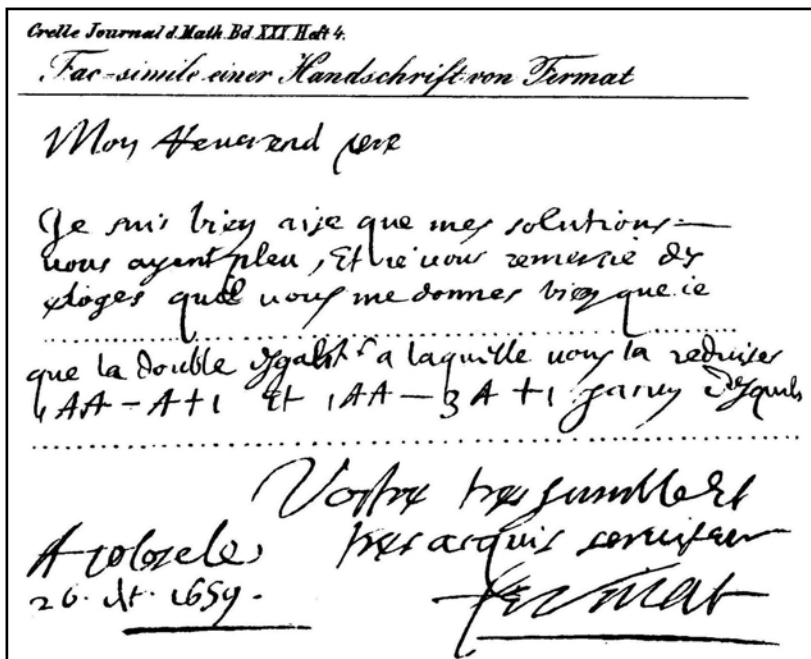 Crelle Journal d. Math. Bd. XXI. Heft 4.
Fac-simile einer Handschrift von Fermat
Mon Reuerend pere
Je suis bien aise que mes solutions
vous ayent pleu, Et ie vous remercie des
eloges que vous me donnes bien que ie
que la double esgalité a laquelle vous la reduises
1AA-A+1 Et 1AA-3A+1
Vostre tres humble Et
tres acquis seruiteur
A tolose le
26. 1659.
Fermat